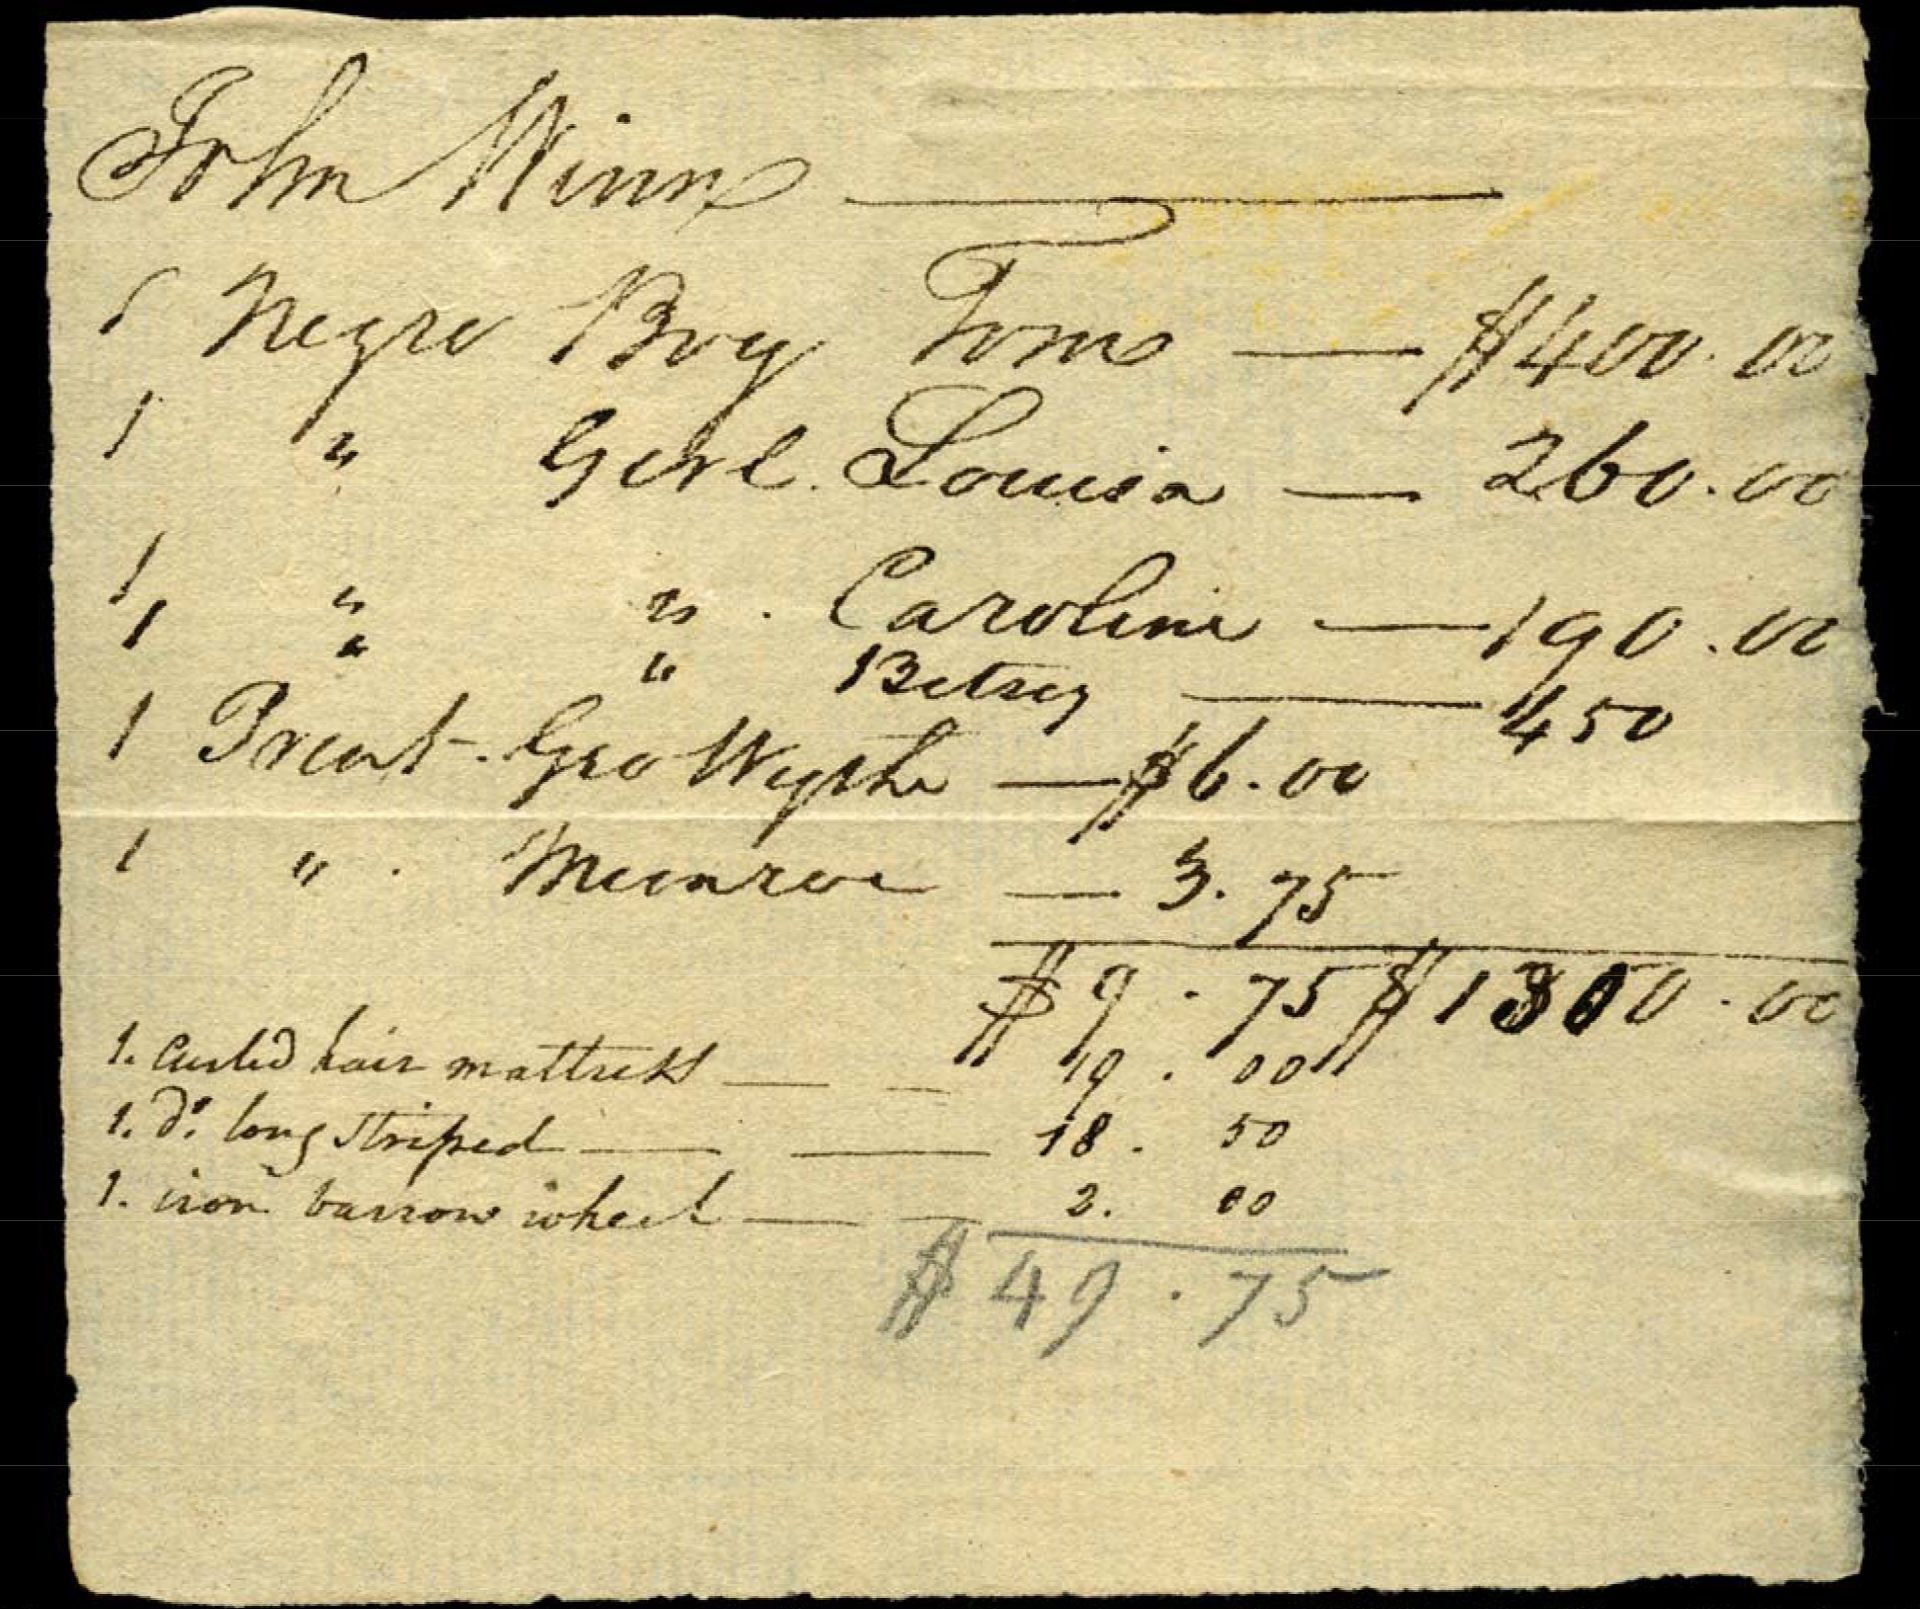 John Winn
1 Negro Boy Tom — $400.00
1 " Gerl. Louisa — 260.00
1 " " . Caroline — 190.00
1 " " Betsey — 450
1 Preint. Geo Wythe — $6.00
1 " . Munroe — 3.75
$9.75 $1300.00
1. Curled hair mattress — — 19.00
1. do. long striped — — 18.50
1. iron barrow wheel — — 2.00
$49.75